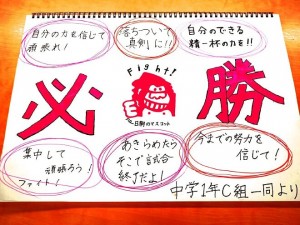 自分の力を信じて
頑張れ!
落ちついて
真剣に!!
自分のできる
精一杯の力を!!
Fight!
必
勝
集中して
頑張ろう!
ファイト!
あきらめたら
そこで試合
終了だよ!
今までの努力を
信じて!
中学1年C組一同より